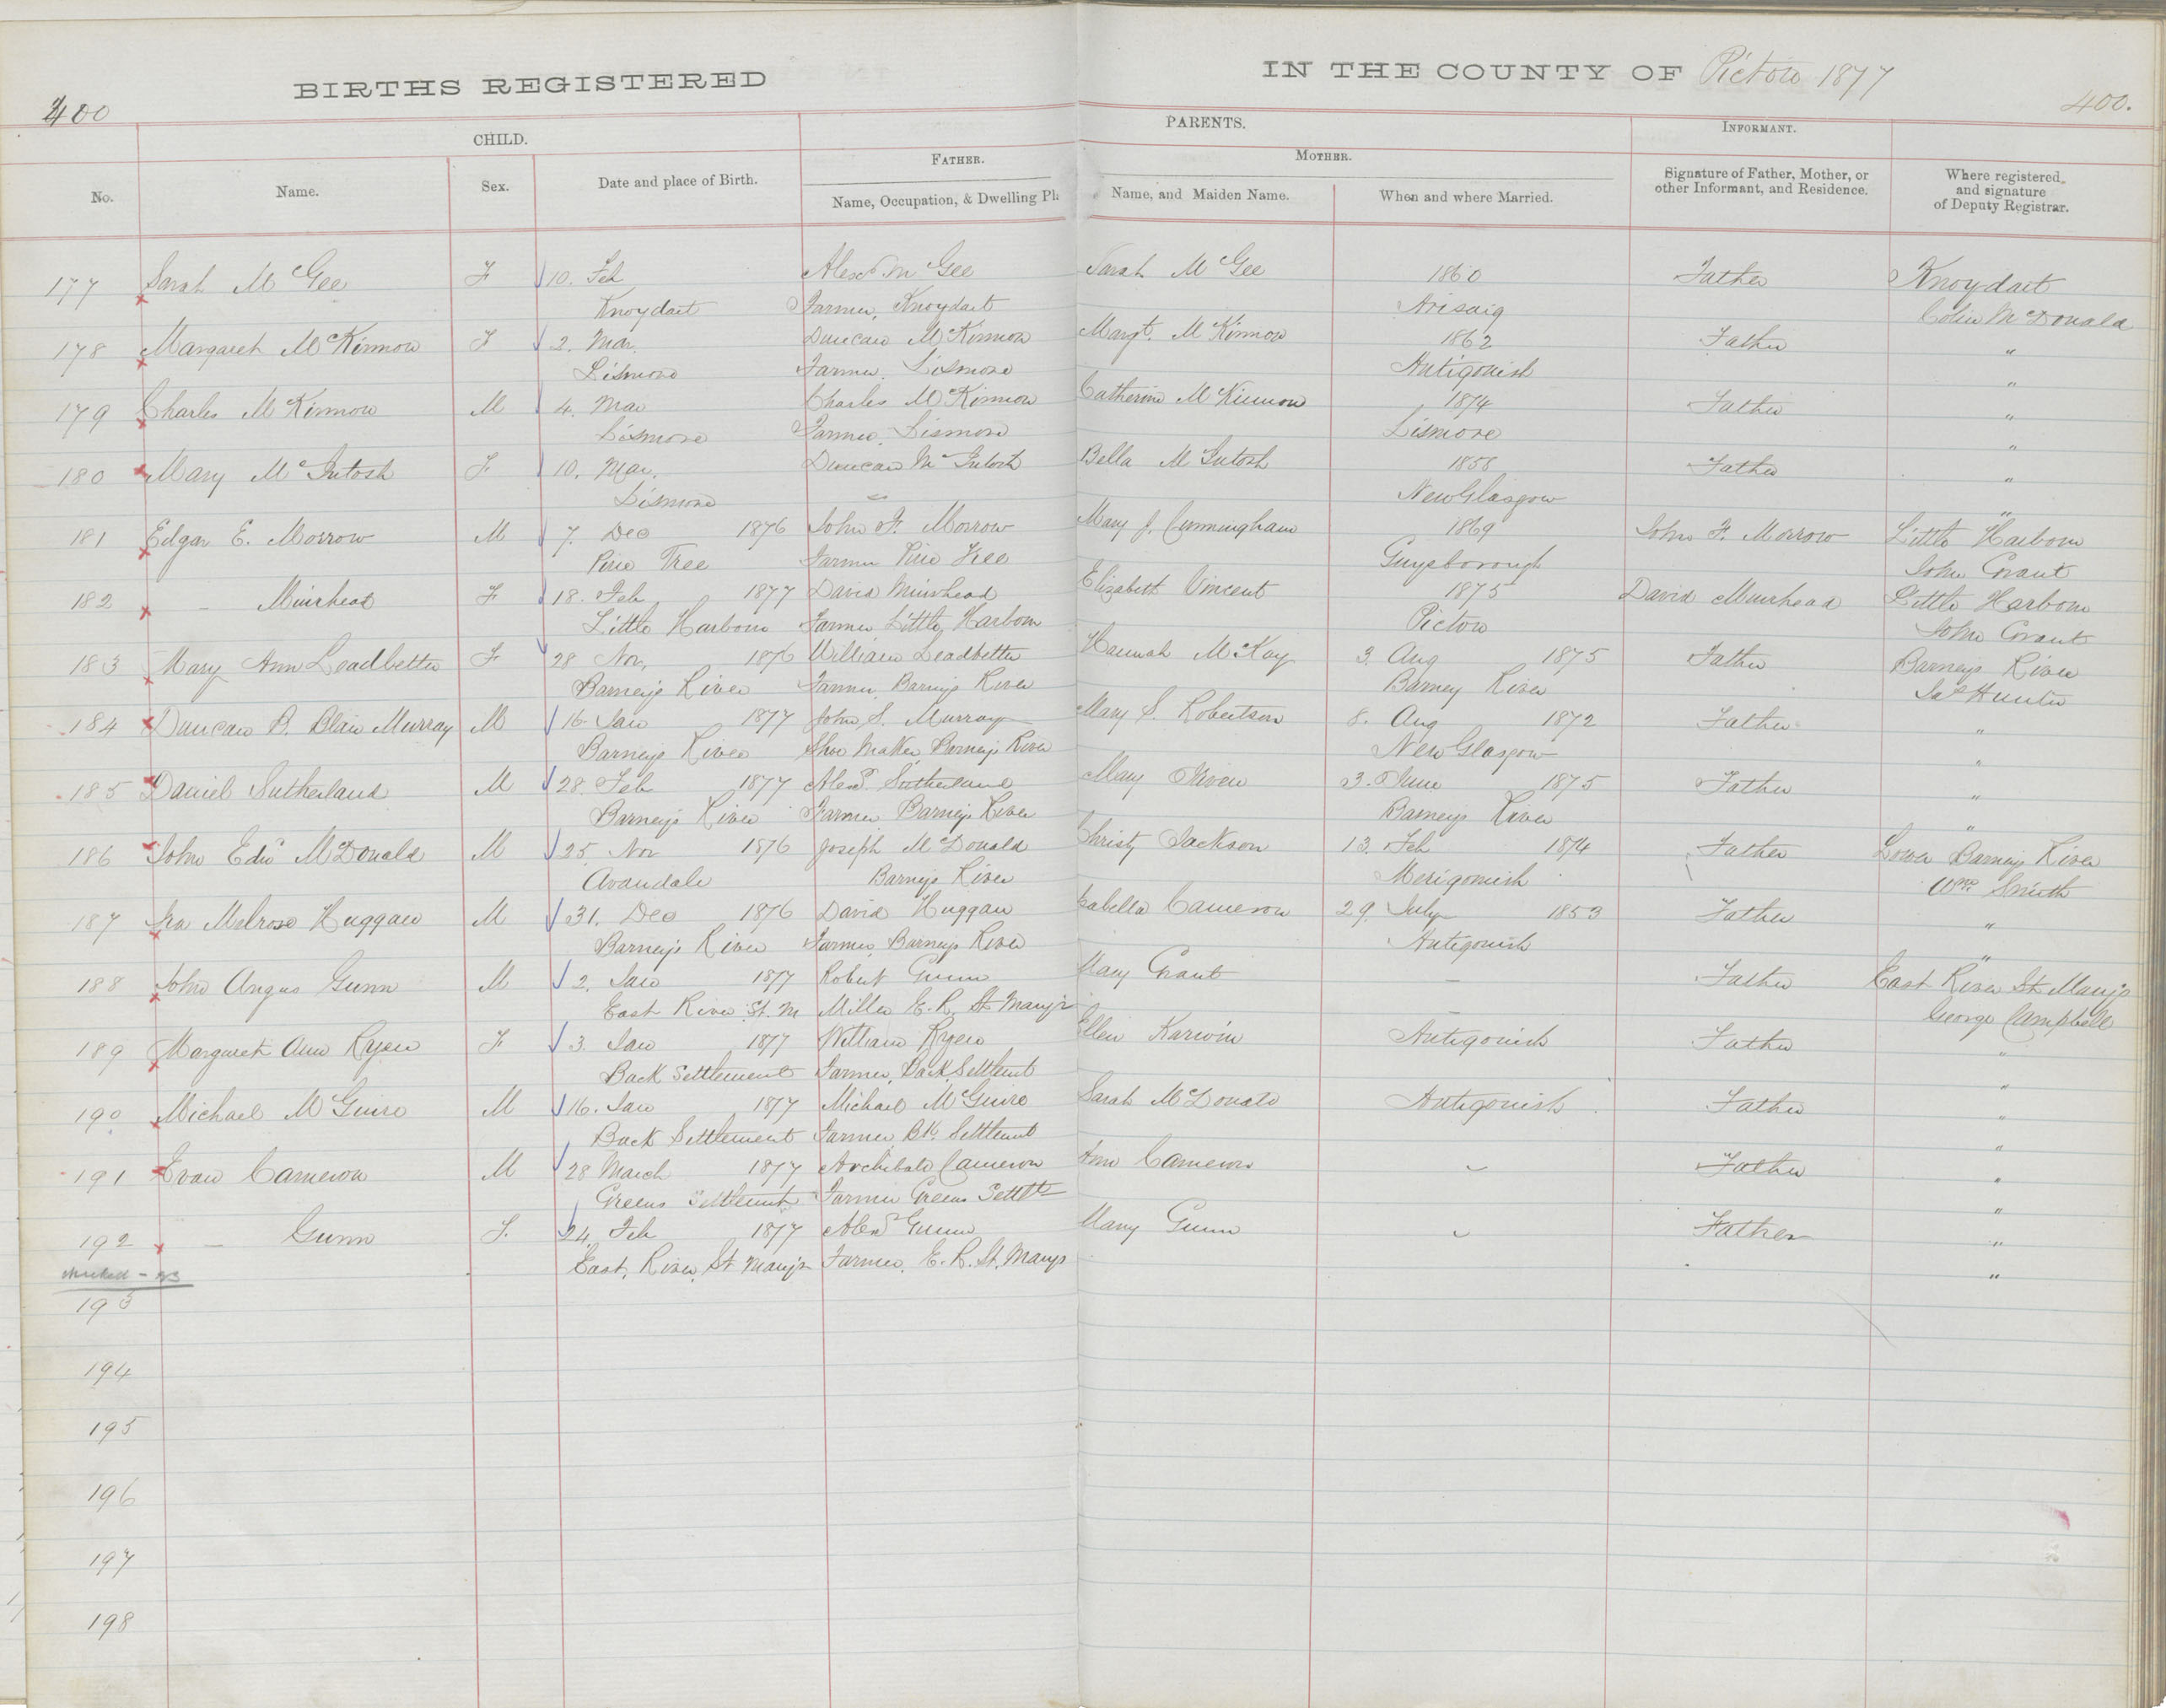 BIRTHS REGISTERED IN THE COUNTY OF Pictou 1877
400 400.
CHILD. PARENTS. INFORMANT.
FATHER. MOTHER.
No. Name. Sex. Date and place of Birth. Name, Occupation, & Dwelling Pla Name, and Maiden Name. When and where Married. Signature of Father, Mother, or other Informant, and Residence. Where registered, and signature of Deputy Registrar.
177 Sarah McGee F 10. Feb Alexr McGee Sarah McGee 1860 Father Knoydart
Knoydart Farmer, Knoydart Arisaig Colin McDonald
178 Margaret McKinnon F 2. Mar. Duncan McKinnon Margt. McKinnon 1862 Father "
Lismore Farmer. Lismore Antigonish "
179 Charles McKinnon M 4. Mar Charles McKinnon Catherine McKinnon 1874 Father "
Lismore Farmer. Lismore Lismore "
180 Mary McIntosh F 10. Mar. Duncan McIntosh Bella McIntosh 1858 Father "
Lismore — New Glasgow "
181 Edgar E. Morrow M 7. Dec 1876 John F. Morrow Mary J. Cunningham 1869 John F. Morrow Little Harbour
Pine Tree Farmer Pine Tree Guysborough John Grant
182 — Muirhead F 18. Feb 1877 David Muirhead Elizabeth Vincent 1875 David Muirhead Little Harbour
Little Harbour Farmer Little Harbour Pictou John Grant
183 Mary Ann Leadbetter F 28 Nov. 1876 William Leadbetter Hannah McKay 3. Aug 1875 Father Barneys River
Barneys River Farmer, Barneys River Barney River Jas Hunter
184 Duncan B. Blair Murray M 16. Jan 1877 John S. Murray Mary S. Robertson 8. Aug 1872 Father "
Barneys River Shoe Maker Barneys River New Glasgow "
185 Daniel Sutherland M 28. Feb 1877 Alexr. Sutherland Mary 3. June 1875 Father "
Barneys River Farmer Barneys River Barneys River "
186 John Edwd McDonald M 25. Nov 1876 Joseph McDonald Christy Jackson 13. Feb 1874 Father Lower Barneys River
Avondale Barneys River Merigomish Wm Smith
187 Ira Melrose Huggan M 31. Dec 1876 David Huggan Isabella Cameron 29. July 1853 Father "
Barneys River Farmer, Barneys River Antigonish "
188 John Angus Gunn M 2. Jan 1877 Robert Gunn Mary Grant — Father East River St. Marys
East River St. M Miller E. R. St Mary's — George Campbell
189 Margaret Ann Ryen F 3. Jan 1877 William Ryen Ellen Karwin Antigonish Father "
Back Settlement Farmer, Back Settlemt "
190 Michael McGuire M 16. Jan 1877 Michael McGuire Sarah McDonald Antigonish Father "
Back Settlement Farmer Bk. Settlemt "
191 Evan Cameron M 28 March 1877 Archibald Cameron Ann Cameron — Father "
Greens Settlement Farmer Greens Settlt "
192 — Gunn F. 24 Feb 1877 Alexr Gunn Mary Gunn — Father "
East River St Mary's Farmer, E. R. St. Marys "
checked
193
194
195
196
197
198